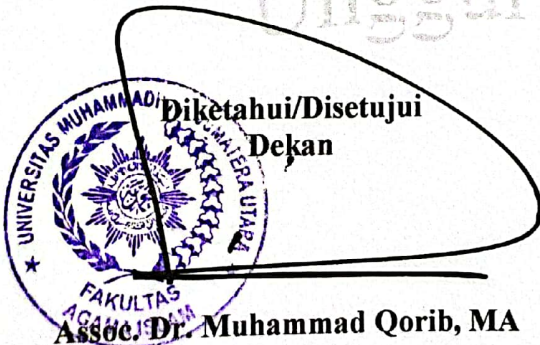 Unggul
Diketahui/Disetujui
Dekan
UNIVERSITAS MUHAMMADIYAH SUMATERA UTARA
FAKULTAS
AGAMA ISLAM
Assoc. Dr. Muhammad Qorib, MA